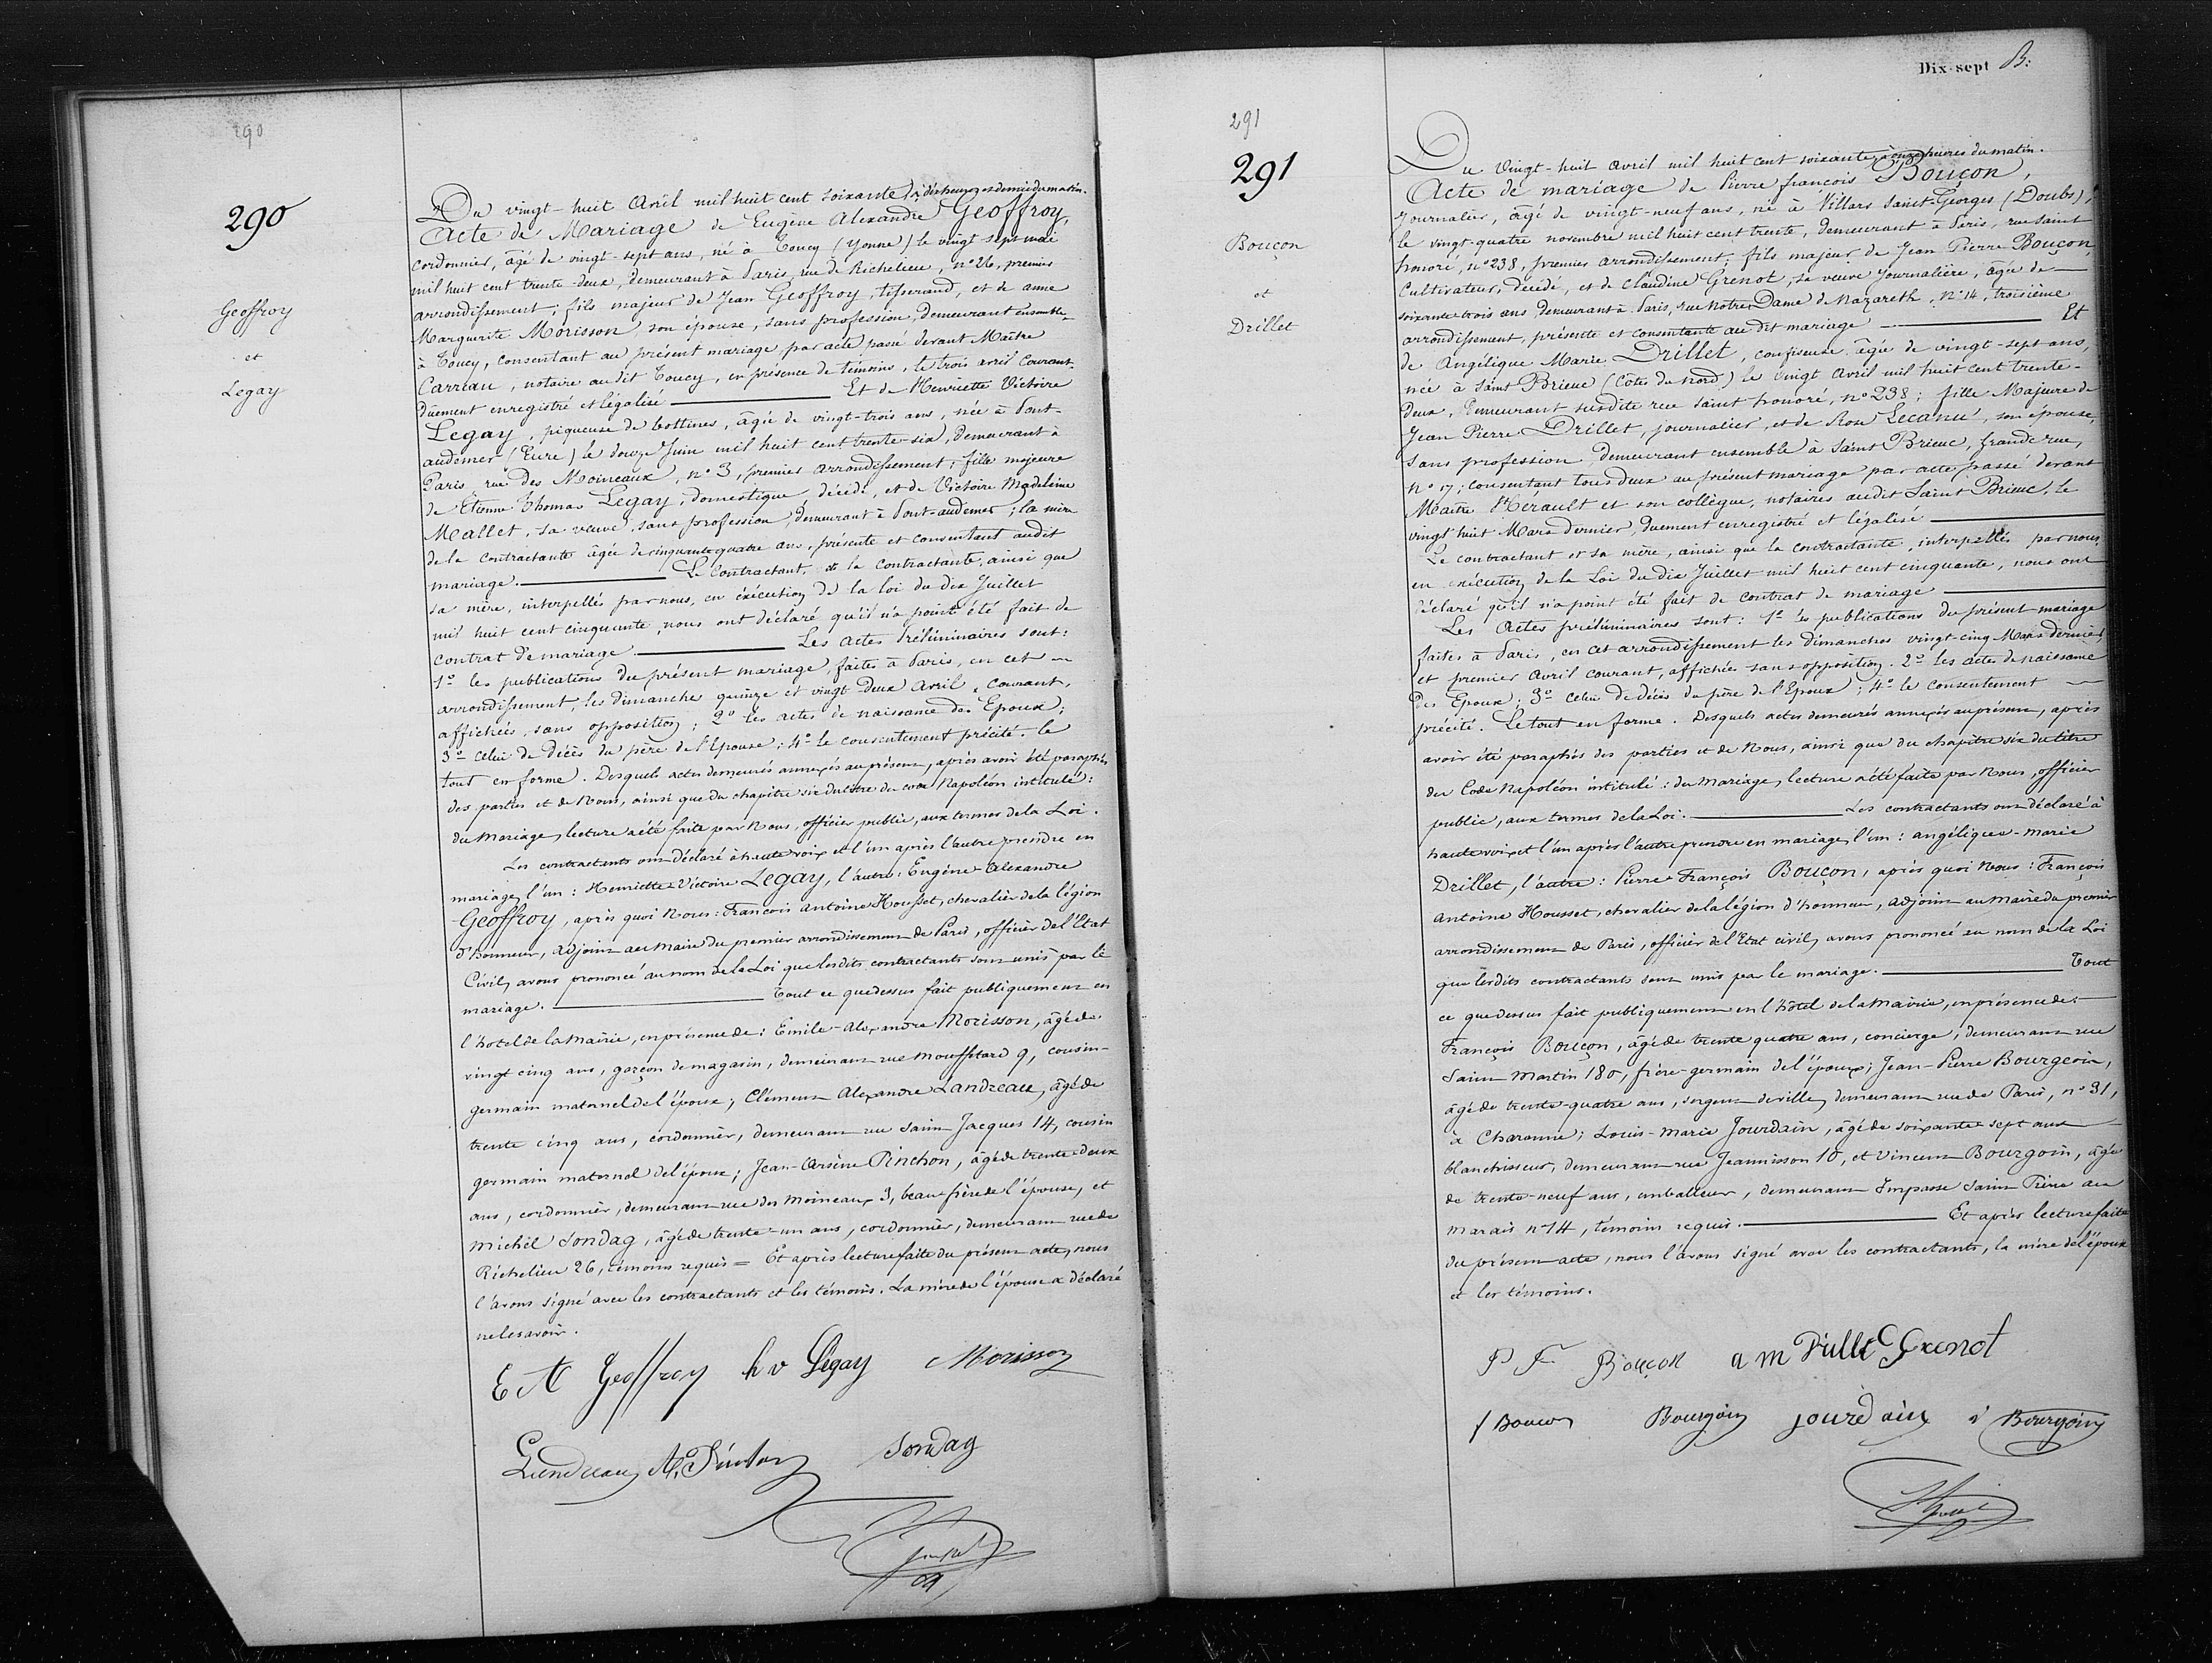 290
290
Geoffroy
et
Legay
Du vingt-huit Avril mil huit cent soixante, à dix heures et demie du matin.
Acte de Mariage de Eugène Alexandre Geoffroy,
cordonnier, âgé de vingt-sept ans, né à Toucy (Yonne) le vingt-sept mai
mil huit cent trente-deux, demeurant à Paris, rue de Richelieu, n° 26, premier
arrondissement; fils majeur de Jean Geoffroy, tisserand, et de anne
Marguerite Morisson son épouse, sans profession, demeurant ensemble
à Toucy, consentant au présent mariage par acte passé devant Maître
Carreau, notaire audit Toucy, en présence de témoins, le trois avril courant
dûement enregistré et légalisé — Et de Henriette Victoire
Legay, piqueuse de bottines, âgée de vingt-trois ans, née à Pont-
audemer (Eure) le douze Juin mil huit cent trente-six, demeurant à
Paris rue des Moineaux, n° 3, premier arrondissement; fille majeure
de Etienne Thomas Legay, domestique décédé, et de Victoire Madeleine
Mallet, sa veuve, sans profession, demeurant à Pont-audemer; la mère
de la contractante âgée de cinquante quatre ans, présente et consentant audit
mariage. — Le Contractant, et la contractante, ainsi que
sa mère, interpellés par nous, en exécution de la loi du dix Juillet
mil huit cent cinquante, nous ont déclaré qu'il n'a point été fait de
contrat de mariage. — Les actes préliminaires sont:
1° les publications du présent mariage, faites à Paris, en cet
arrondissement, les dimanche quinze et vingt deux avril, courant,
affichées, sans opposition; 2° les actes de naissance des Epoux;
3° celui de décès du père de l'Epouse; 4° le consentement précité. le
tout en forme. Desquels actes demeurés annexés au présent, après avoir été paraphés
des parties et de Nous, ainsi que du chapitre six du titre du code Napoléon intitulé:
du Mariage, lecture a été faite par Nous, officier public, aux termes de la Loi.
Les contractants ont déclaré à haute voix et l'un après l'autre prendre en
mariage, l'un: Henriette Victoire Legay, l'autre: Eugène Alexandre
Geoffroy, après quoi Nous: François antoine Housset, chevalier de la légion
d'honneur, adjoint au Maire du premier arrondissement de Paris, officier de l'Etat
Civil, avons prononcé au nom de la Loi que lesdits contractants sont unis par le
mariage. — Tout ce que dessus fait publiquement en
l'hôtel de la Mairie, en présence de: Emile-Alexandre Morisson, âgé de
vingt cinq ans, garçon de magasin, demeurant rue Mouffetard 9, cousin-
germain maternel de l'époux; Clément Alexandre Landreau, âgé de
trente cinq ans, cordonnier, demeurant rue Saint Jacques 14, cousin
germain maternel de l'époux; Jean-Arsène Pinchon, âgé de trente-deux
ans, cordonnier, demeurant rue des Moineaux 3, beau frère de l'épouse, et
Michel Sondag, âgé de trente-un ans, cordonnier, demeurant rue de
Richelieu 26, témoins requis = Et après lecture faite du présent acte, nous
l'avons signé avec les contractants et les témoins. La mère de l'épouse a déclaré
ne le savoir.
E A Geoffroy h v Legay Morisson
Landreau Sondag
Dix-sept
291
291
Bouçon
et
Drillet
Du Vingt-huit avril mil huit cent soixante, à onze heures du matin.
Acte de mariage de Pierre françois Bouçon,
Journalier, âgé de vingt-neuf ans, né à Villars Saint-Georges (Doubs),
le vingt-quatre novembre mil huit cent trente, demeurant à Paris, rue saint
honoré, n° 238, premier arrondissement; fils majeur de Jean Pierre Bouçon,
Cultivateur, décédé, et de Claudine Grenot, sa veuve Journalière, âgée de
soixante trois ans demeurant à Paris, rue Notre Dame de Nazareth, n° 14, troisième
arrondissement, présente et consentante au dit mariage — Et
de Angélique Marie Drillet, confiseuse âgée de vingt-sept ans,
née à Saint Brieuc (Côtes du Nord) le vingt Avril mil huit cent trente-
deux, demeurant susdite rue saint honoré, n° 238; fille Majeure de
Jean Pierre Drillet, journalier, et de Rose Lecanu, son épouse,
sans profession demeurant ensemble à Saint Brieuc, grande rue,
n° 17; Consentant tous deux au présent mariage par acte passé devant
Maître Hérault et son collègue, notaires audit Saint Brieuc, le
vingt huit Mars dernier, duement enregistré et légalisé —
Le contractant et sa mère, ainsi que la contractante, interpellés par nous,
en exécution de la Loi du dix Juillet mil huit cent cinquante, nous ont
déclaré qu'il n'a point été fait de contrat de mariage —
Les Actes préliminaires sont: 1° les publications du présent mariage
faites à Paris, en cet arrondissement les dimanches vingt-cinq Mars dernier
et premier Avril courant, affichées sans opposition. 2° les actes de naissance
des Epoux; 3° celui de décès du père de l'Epoux; 4° le consentement
précité. Le tout en forme. Desquels actes demeurés annexés au présent, après
avoir été paraphés des parties et de Nous, ainsi que du chapitre six du titre
du Code Napoléon intitulé: du Mariage, lecture a été faite par Nous, officier
public, aux termes de la Loi. — Les contractants ont déclaré à
haute voix et l'un après l'autre prendre en mariage, l'un: angélique-marie
Drillet, l'autre: Pierre François Bouçon, après quoi Nous: François
antoine Housset, chevalier de la légion d'honneur, adjoint au Maire du premier
arrondissement de Paris, officier de l'Etat civil, avons prononcé au nom de la Loi
que lesdits contractants sont unis par le mariage. — Tout
ce que dessus fait publiquement en l'hôtel de la Mairie, en présence de:
François Bouçon, âgé de trente quatre ans, concierge, demeurant rue
Saint Martin 180, frère-germain de l'époux; Jean-Pierre Bourgeoin,
âgé de trente-quatre ans, sergent de ville, demeurant rue de Paris, n° 31,
à Charonne; Louis-Marie Jourdain, âgé de soixante sept ans
blanchisseur, demeurant rue Jeannisson 10, et Vincent Bourgoin, âgé
de trente-neuf ans, emballeur, demeurant Impasse Saint Pierre au
marais n° 14, témoins requis. — Et après lecture faite
du présent acte, nous l'avons signé avec les contractants, la mère de l'époux
et les témoins.
P F Bouçon a m Drillet C Grenot
f Boucon Bourgoin jourdain v Bourgoin